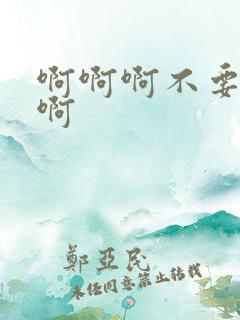 啊啊啊不要
啊
鄭亞民
未经同意禁止转载